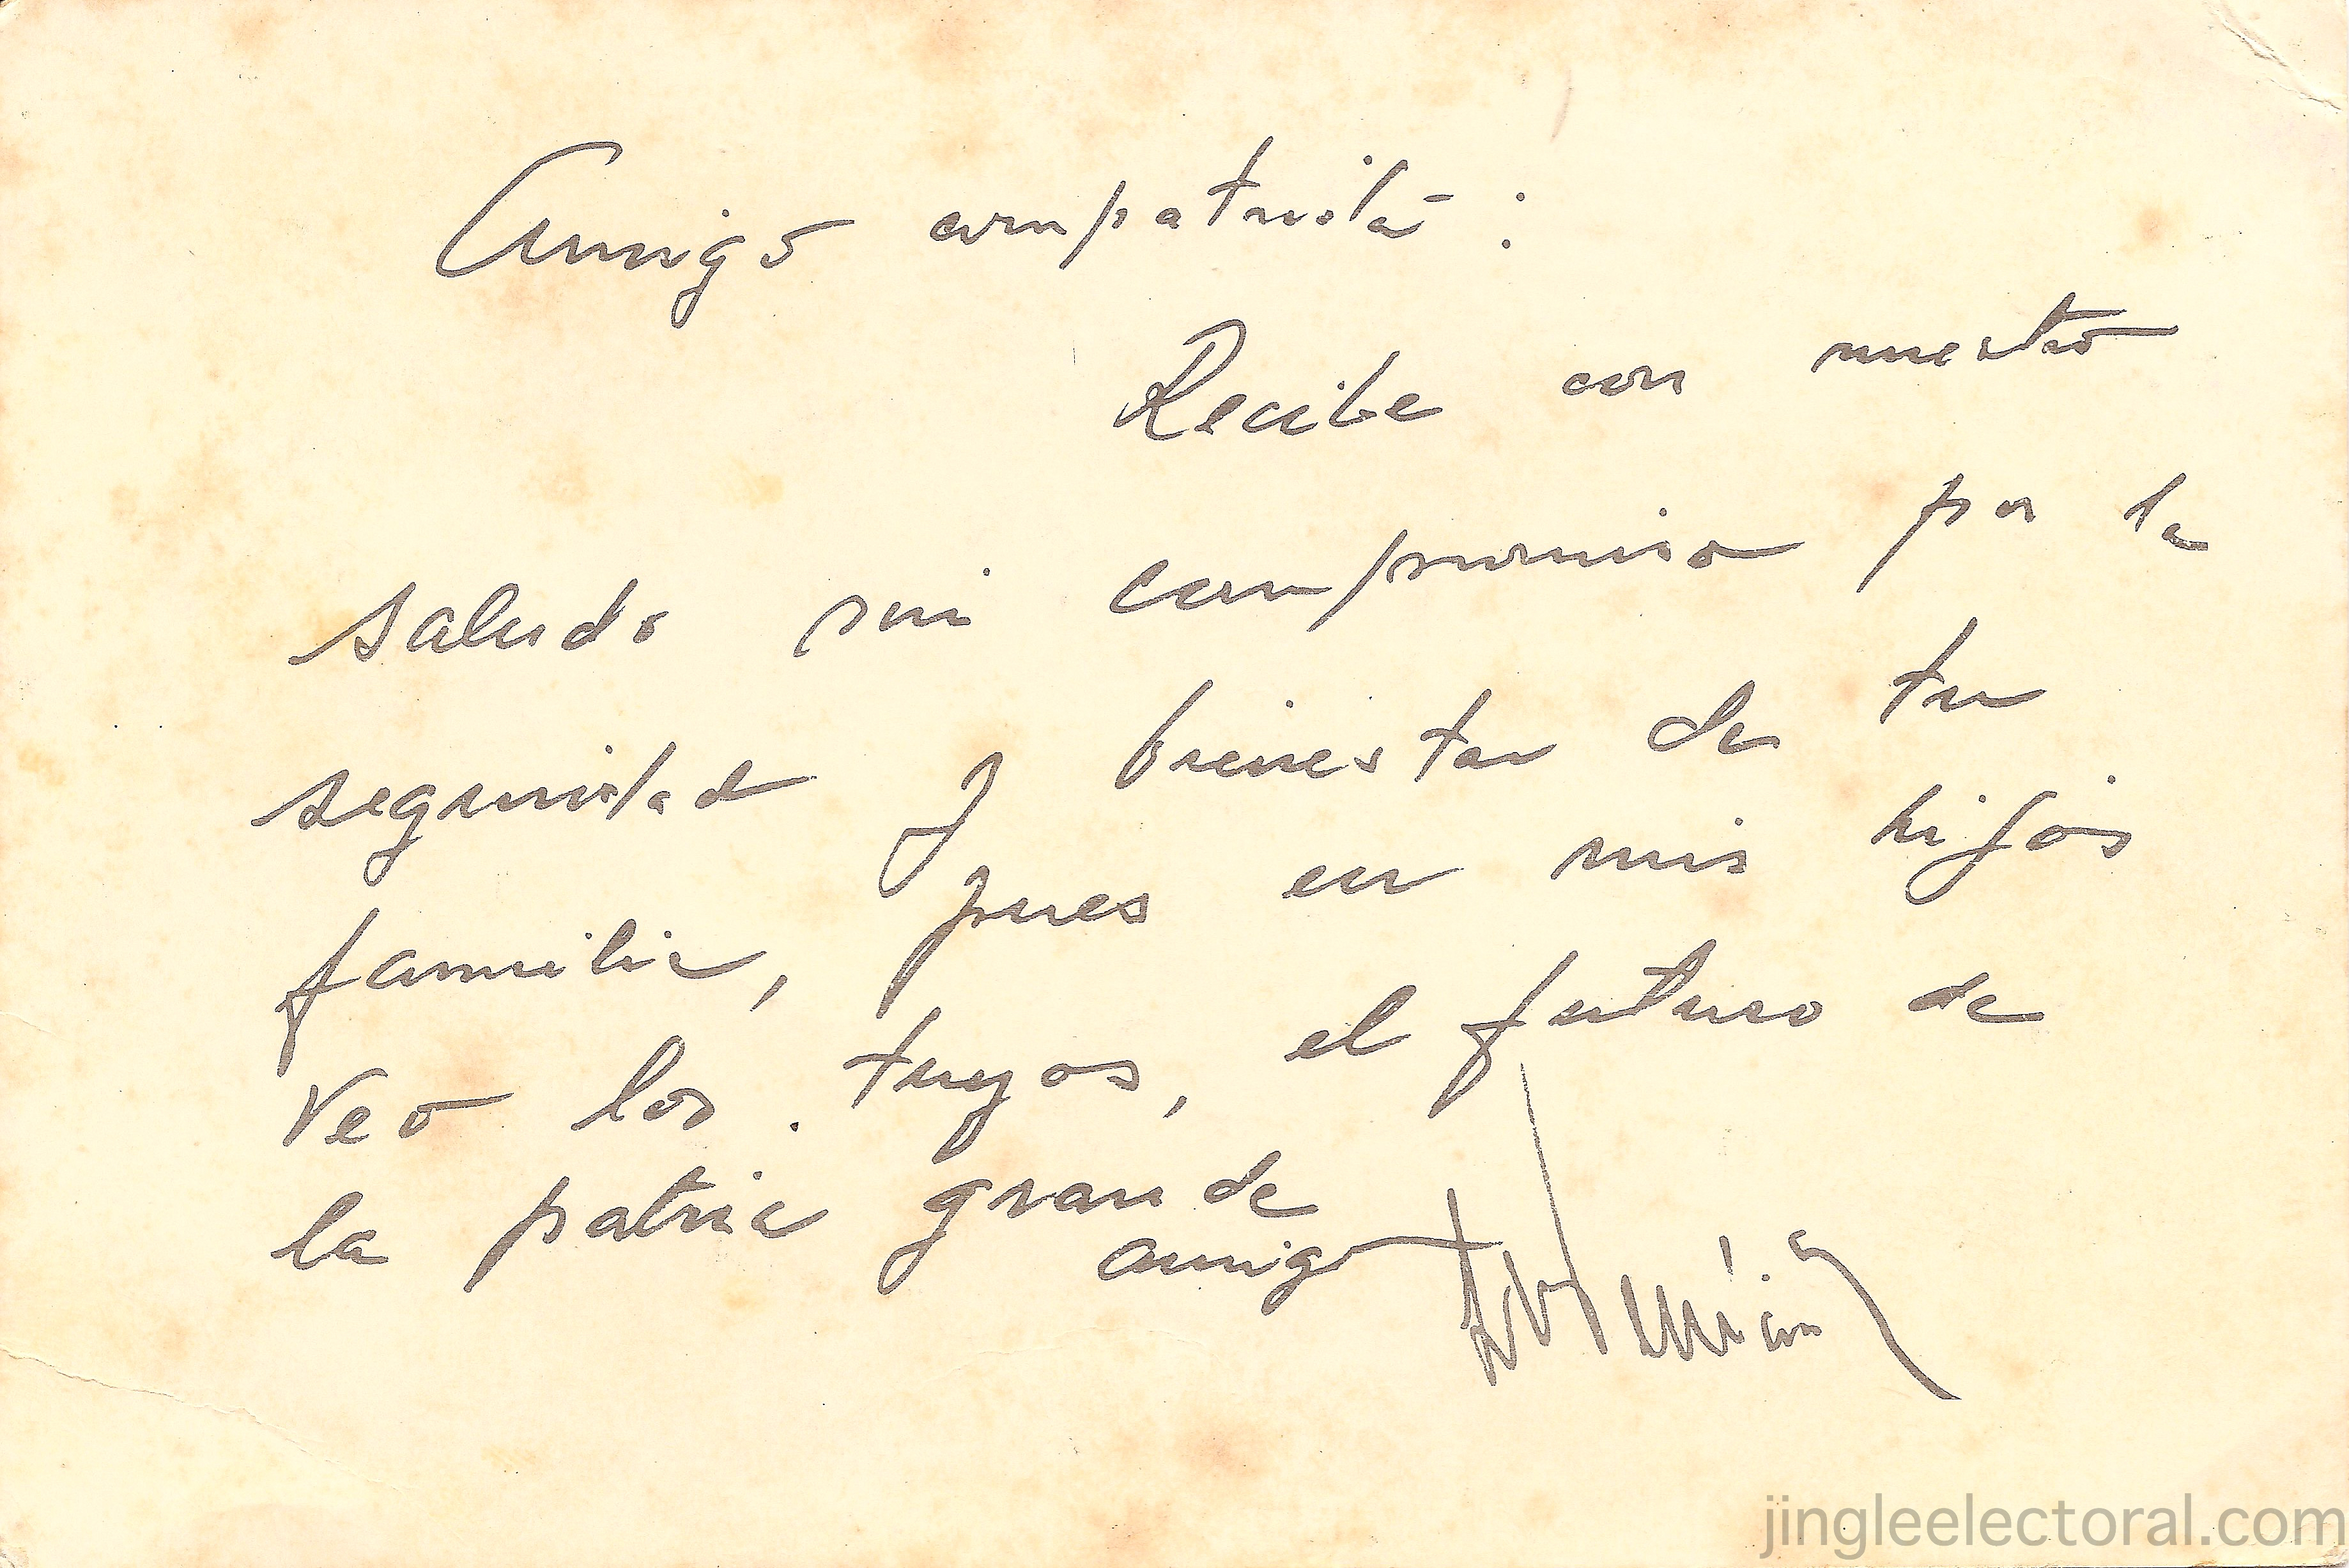 Amigo compatriota:
Recibe con nuestro
saludo mi compromiso por la
seguridad y bienestar de tu
familia, pues en mis hijos
veo los tuyos, el futuro de
la patria grande
amigo
jingleelectoral.com